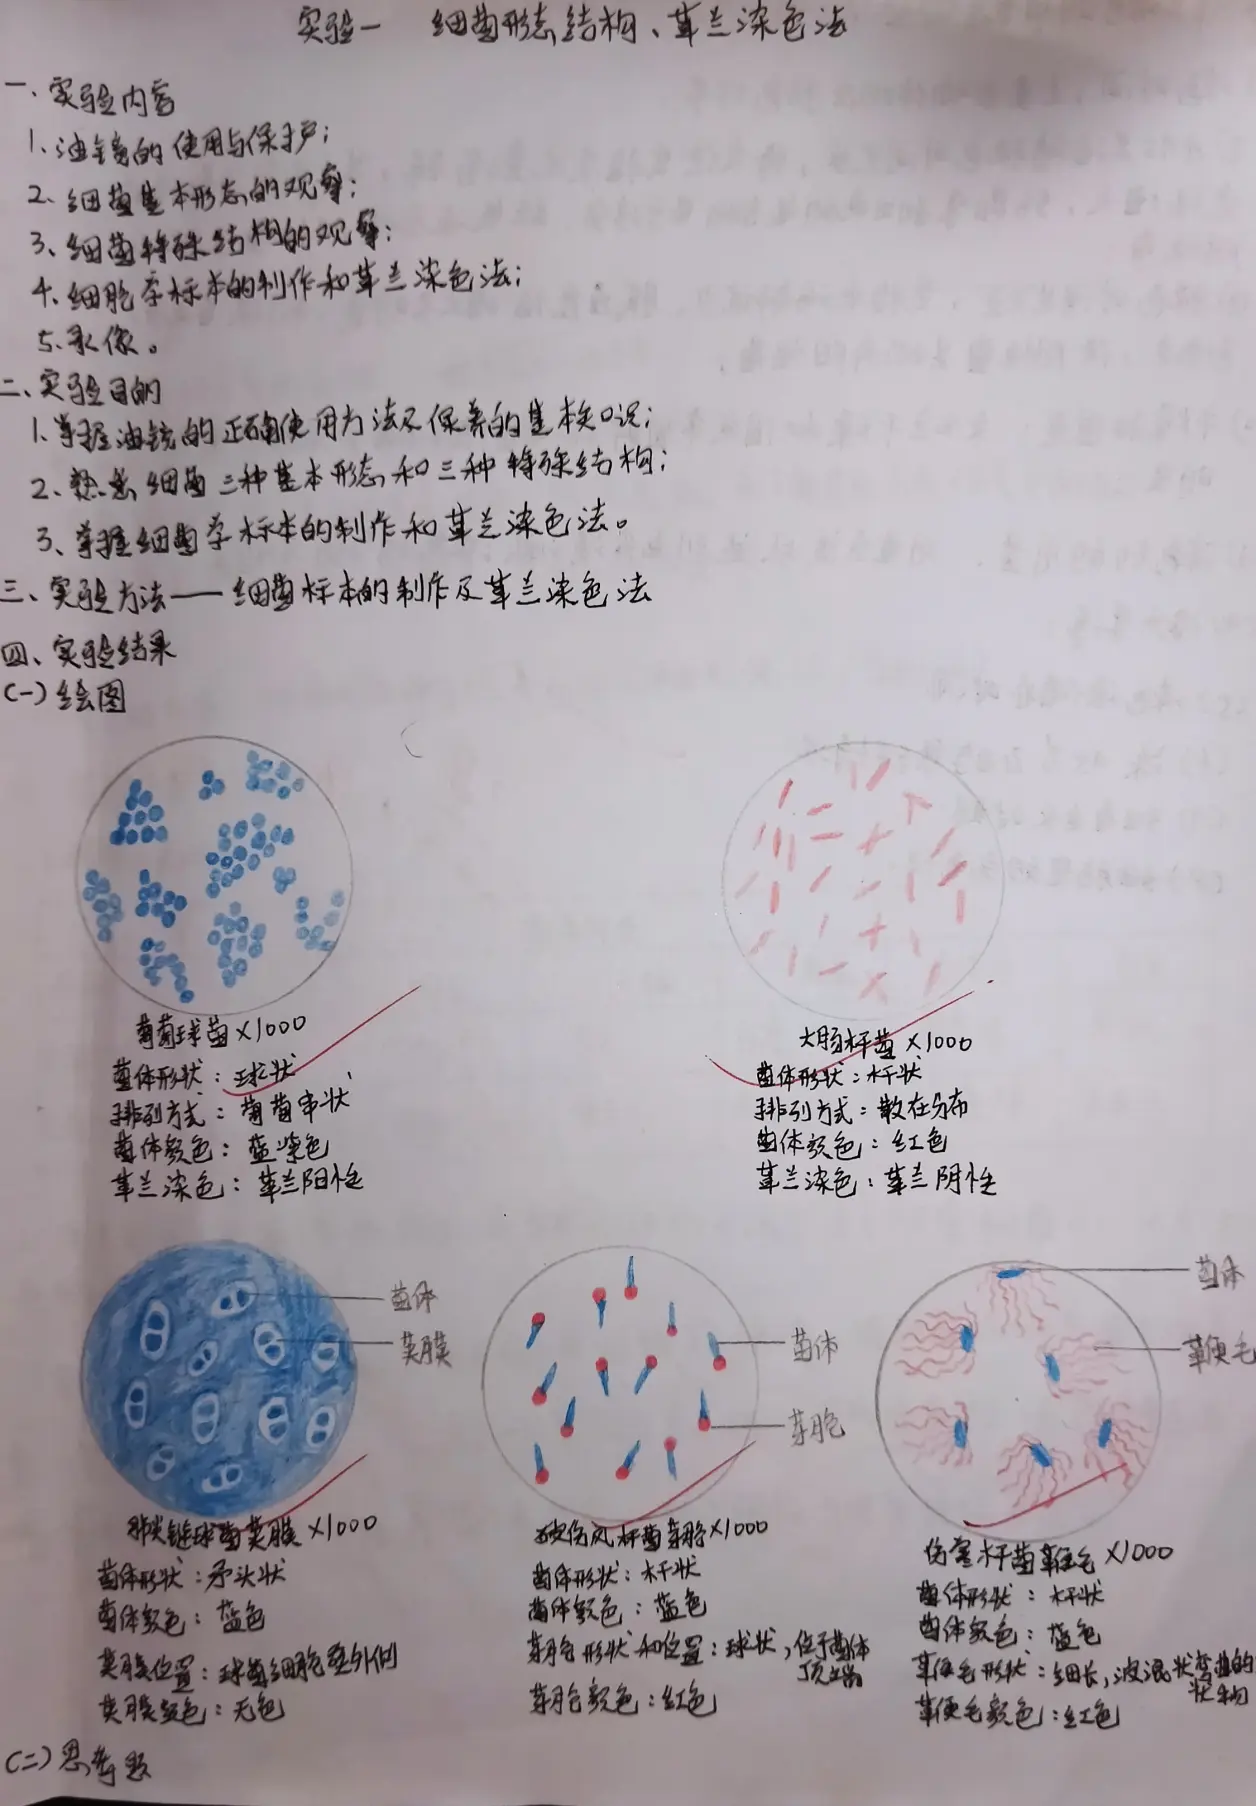 实验一 细菌形态结构、革兰染色法
一、实验内容
1、油镜的使用与保护；
2、细菌基本形态的观察；
3、细菌特殊结构的观察；
4、细胞学标本的制作和革兰染色法；
5、录像。
二、实验目的
1、掌握油镜的正确使用方法及保养的基本知识；
2、熟悉细菌三种基本形态和三种特殊结构；
3、掌握细菌学标本的制作和革兰染色法。
三、实验方法——细菌标本的制作及革兰染色法
四、实验结果
(一)绘图
葡萄球菌×1000
菌体形状：球状
排列方式：葡萄串状
菌体颜色：蓝紫色
革兰染色：革兰阳性
大肠杆菌×1000
菌体形状：杆状
排列方式：散在分布
菌体颜色：红色
革兰染色：革兰阴性
菌体
荚膜
肺炎链球菌荚膜×1000
菌体形状：矛头状
菌体颜色：蓝色
荚膜位置：球菌细胞壁外侧
荚膜颜色：无色
菌体
芽胞
破伤风杆菌芽胞×1000
菌体形状：杆状
菌体颜色：蓝色
芽胞形状和位置：球状，位于菌体
顶端
芽胞颜色：红色
菌体
鞭毛
伤寒杆菌鞭毛×1000
菌体形状：杆状
菌体颜色：蓝色
鞭毛形状：细长，波浪状弯曲的
状物
鞭毛颜色：红色
(二)思考题